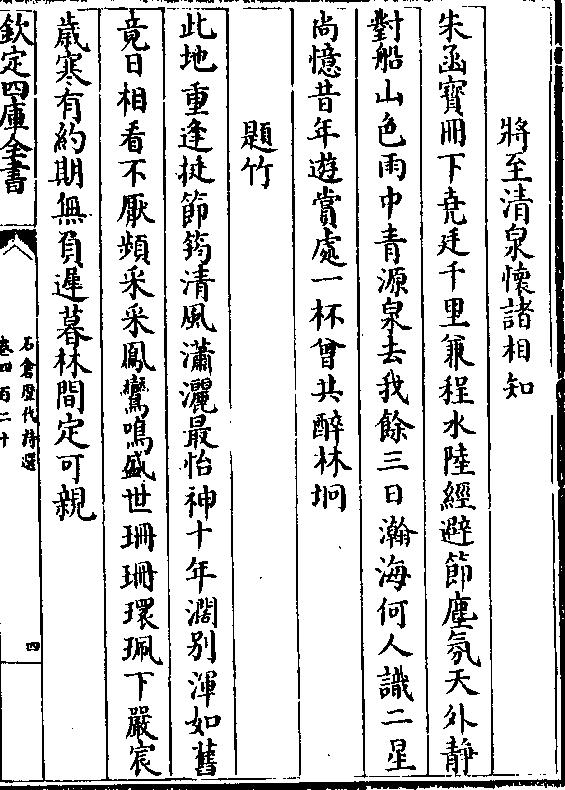 將至清泉懷諸相知
朱函寶冊下堯廷千里兼程水陸經避節塵氛天外靜
對船山色雨中青源泉去我餘三日瀚海何人識二星
尚憶昔年遊賞處一杯曾共醉林坰
題竹
此地重逢挺節筠清風瀟灑最怡神十年濶别渾如舊
竟日相看不厭頻采采鳳鸞鳴盛世珊珊環珮下嚴宸
歲寒有約期無負遲暮林間定可親
欽定四庫全書
石倉歴代詩選
卷四百二十
四